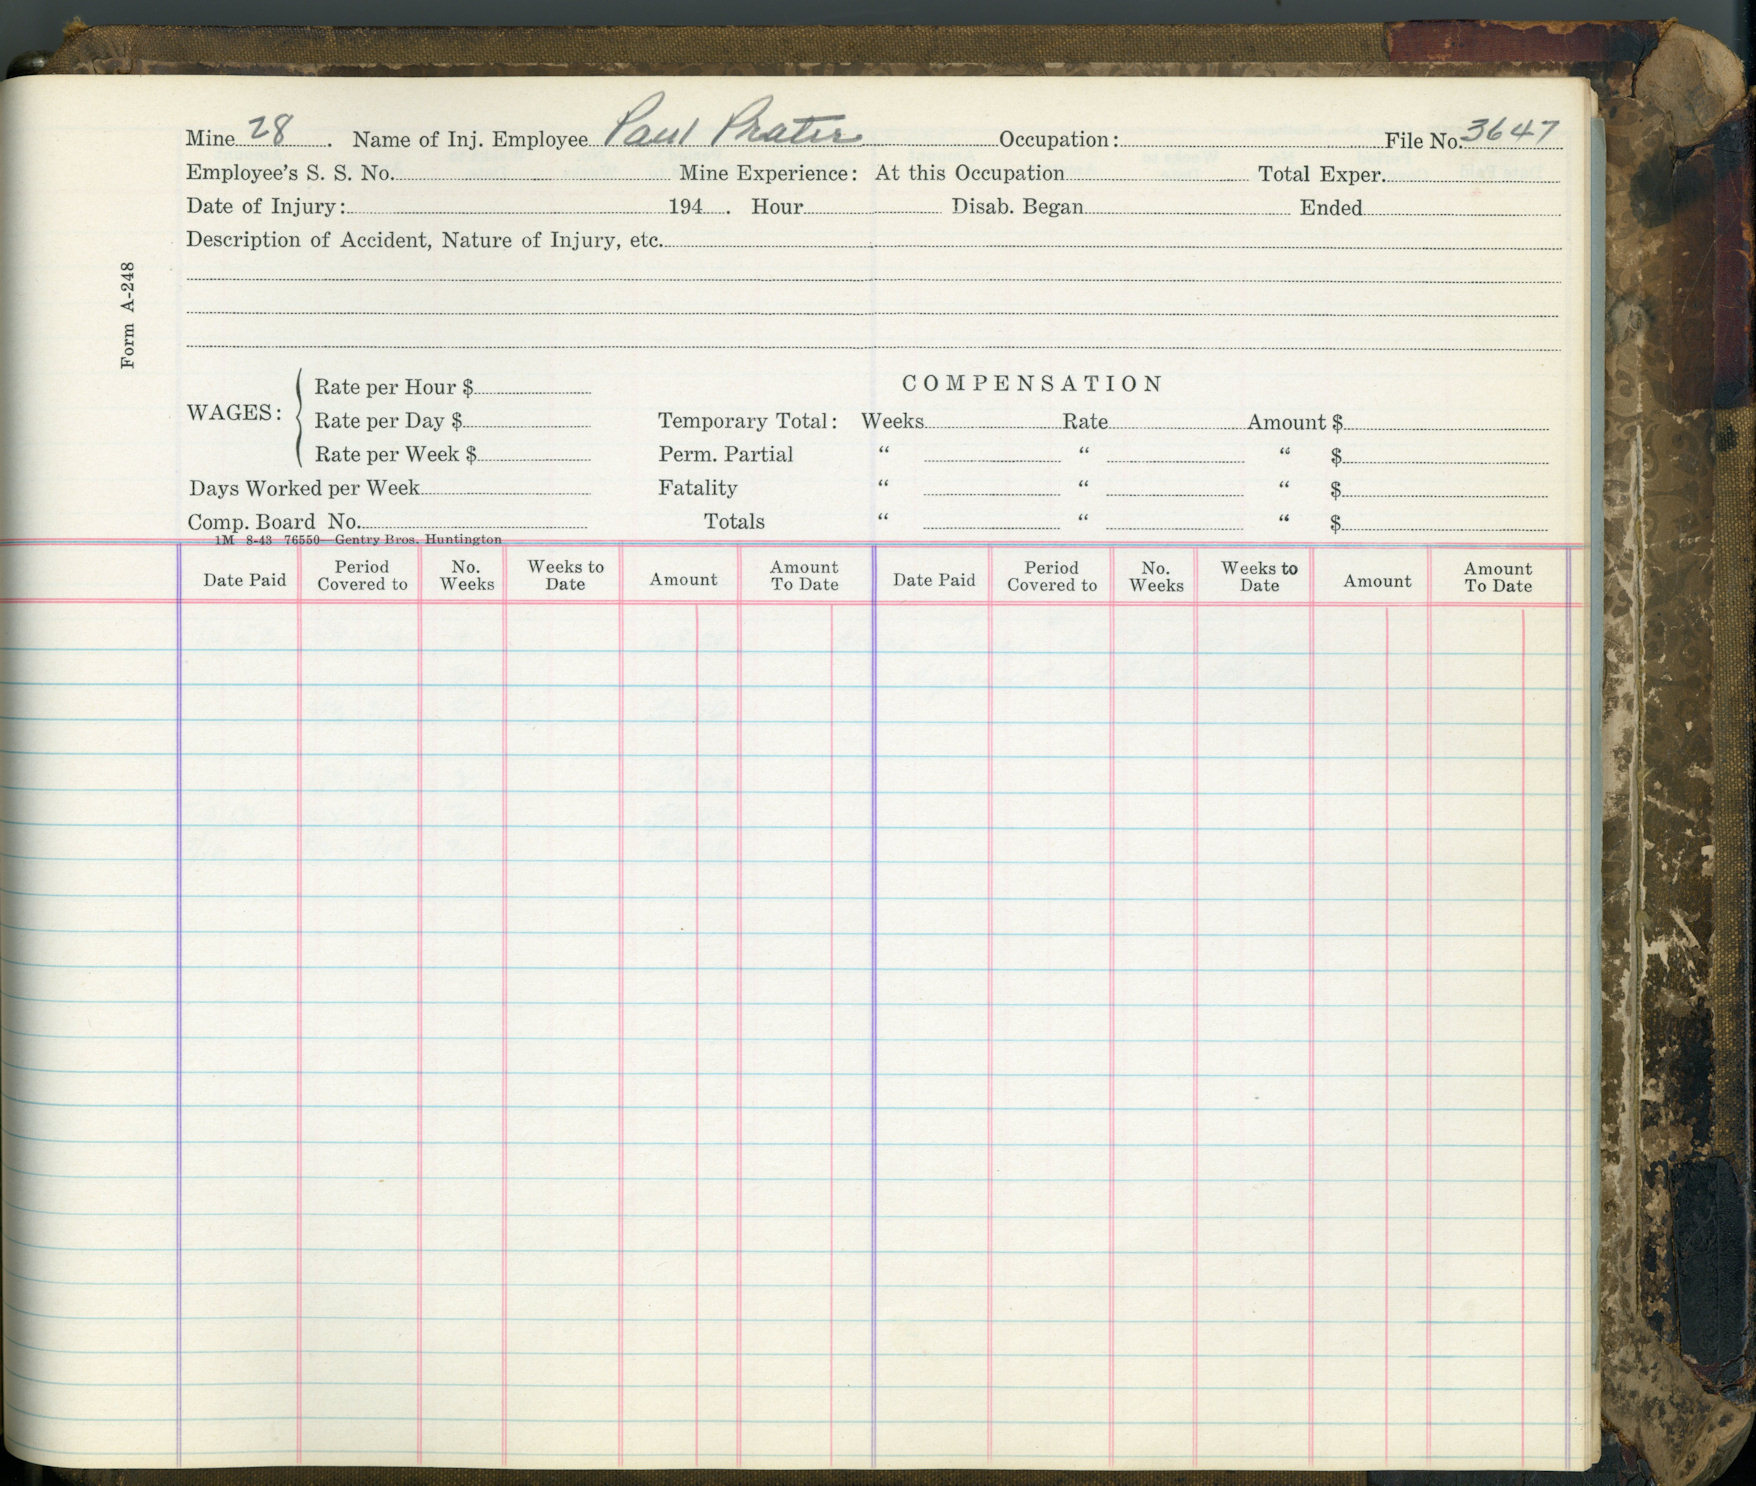 Mine 28. Name of Inj. Employee Paul Prater Occupation: File No. 3647
Employee's S. S. No. Mine Experience: At this Occupation Total Exper.
Date of Injury: 194 . Hour Disab. Began Ended
Description of Accident, Nature of Injury, etc.
Form A-248
COMPENSATION
WAGES: Rate per Hour $
Rate per Day $ Temporary Total: Weeks Rate Amount $
Rate per Week $ Perm. Partial " " " $
Days Worked per Week Fatality " " " $
Comp. Board No. Totals " " " $
1M 8-43 76550—Gentry Bros. Huntington
Date Paid Period Covered to No. Weeks Weeks to Date Amount Amount To Date Date Paid Period Covered to No. Weeks Weeks to Date Amount Amount To Date